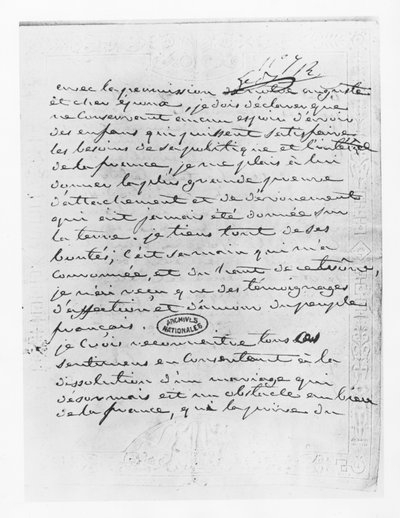 avec la permission de notre auguste
et cher époux, je dois déclarer que
ne conservant aucun espoir d'avoir
des enfans qui puissent satisfaire
les besoins de sa politique et l'interest
de la france, je me plais à lui
donner la plus grande preuve
d'attachement et de dévouement
qui ait jamais été donnée sur
la terre. je tiens tout de ses
bontés; c'est sa main qui m'a
couronnée, et du haut de ce trône,
je n'ai reçu que des témoignages
d'affection et d'amour du peuple
français.
ARCHIVES
NATIONALES
je crois reconnoitre tous ces
sentimens en consentant à la
dissolution d'un mariage qui
désormais est un obstacle au bien
de la france, qui la prive du